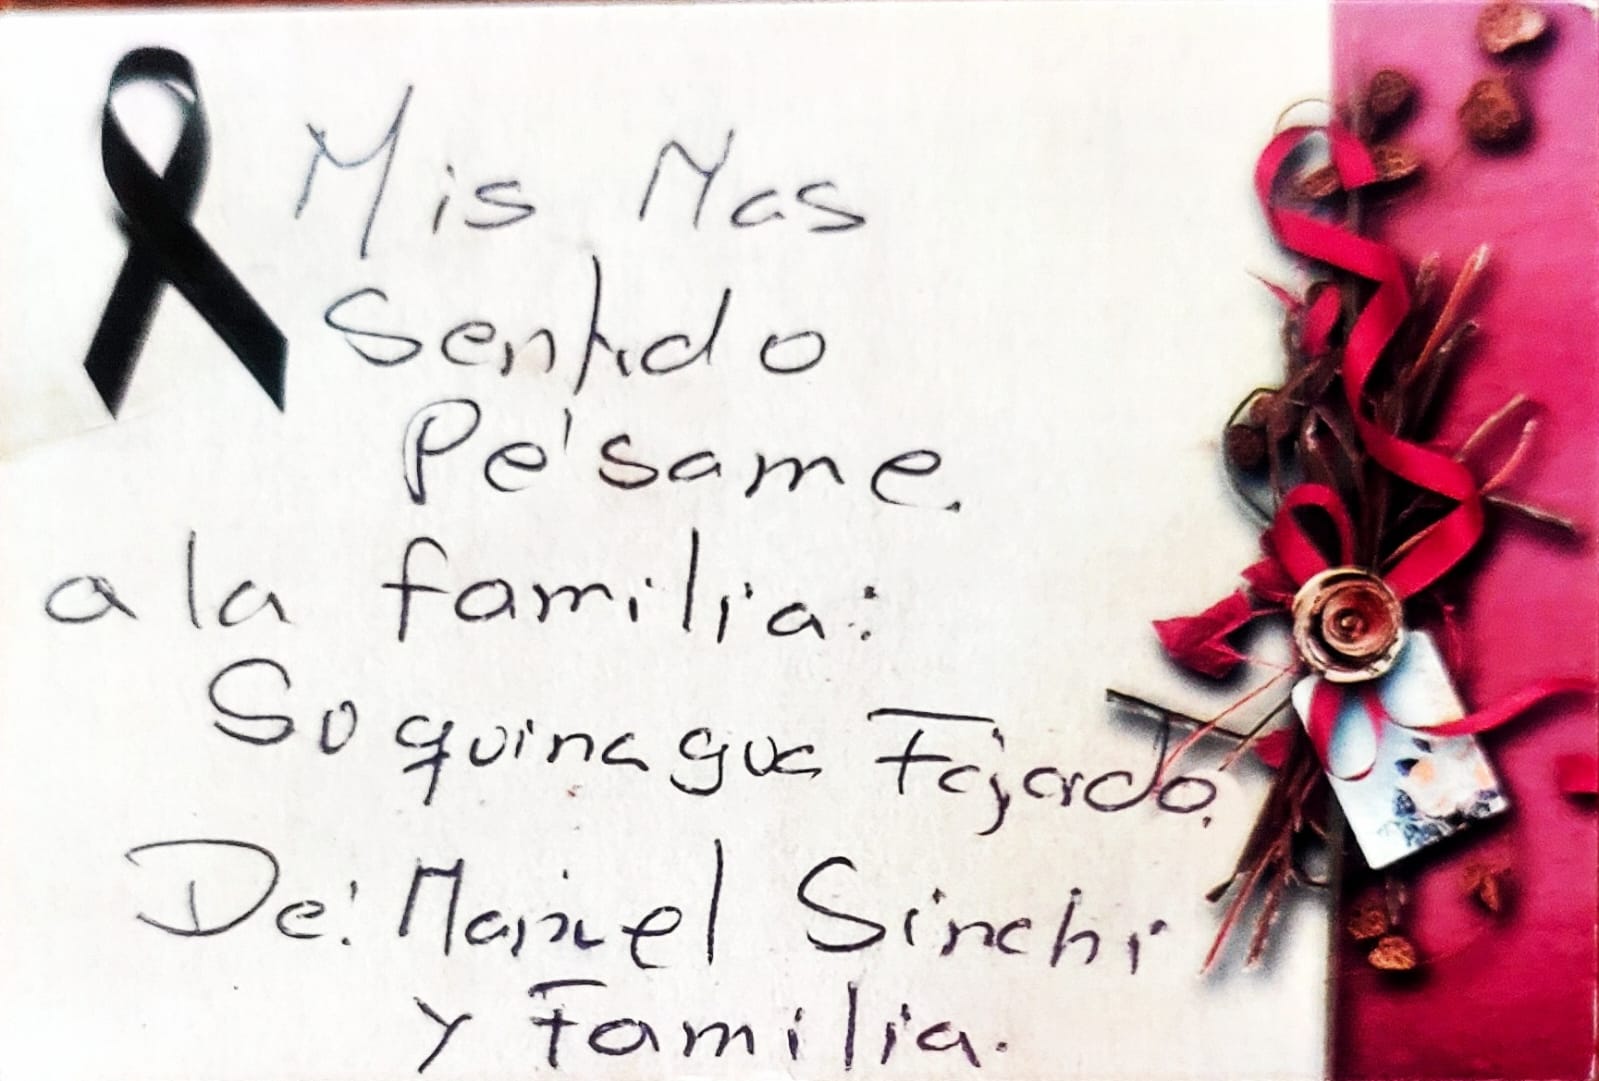 Mis Mas
Sentido
Pésame.
a la familia:
Suquinagua Fajardo.
De: Manuel Sinchi
y Familia.